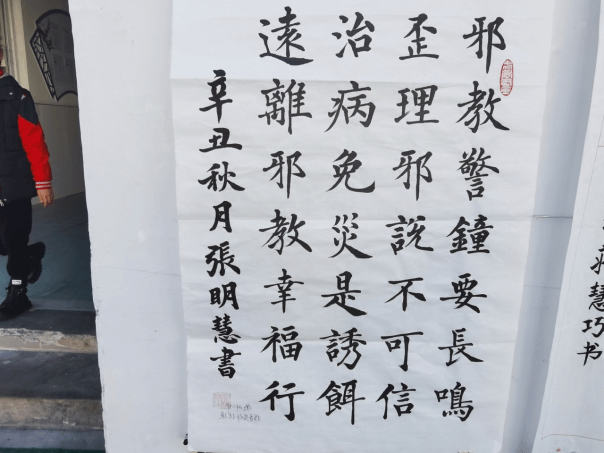 邪教警鐘要長鳴
歪理邪說不可信
治病免災是誘餌
遠離邪教幸福行
辛丑秋月張明慧書
慧巧书